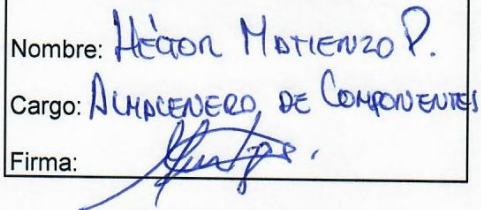 Nombre: Héctor Matienzo P.
Cargo: Almacenero de Componentes
Firma: